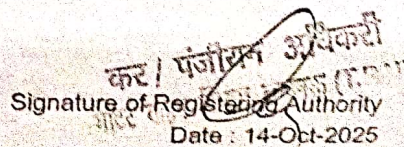 कर / पंजीयन अधिकारी
Signature of Registering Authority
Date : 14-Oct-2025